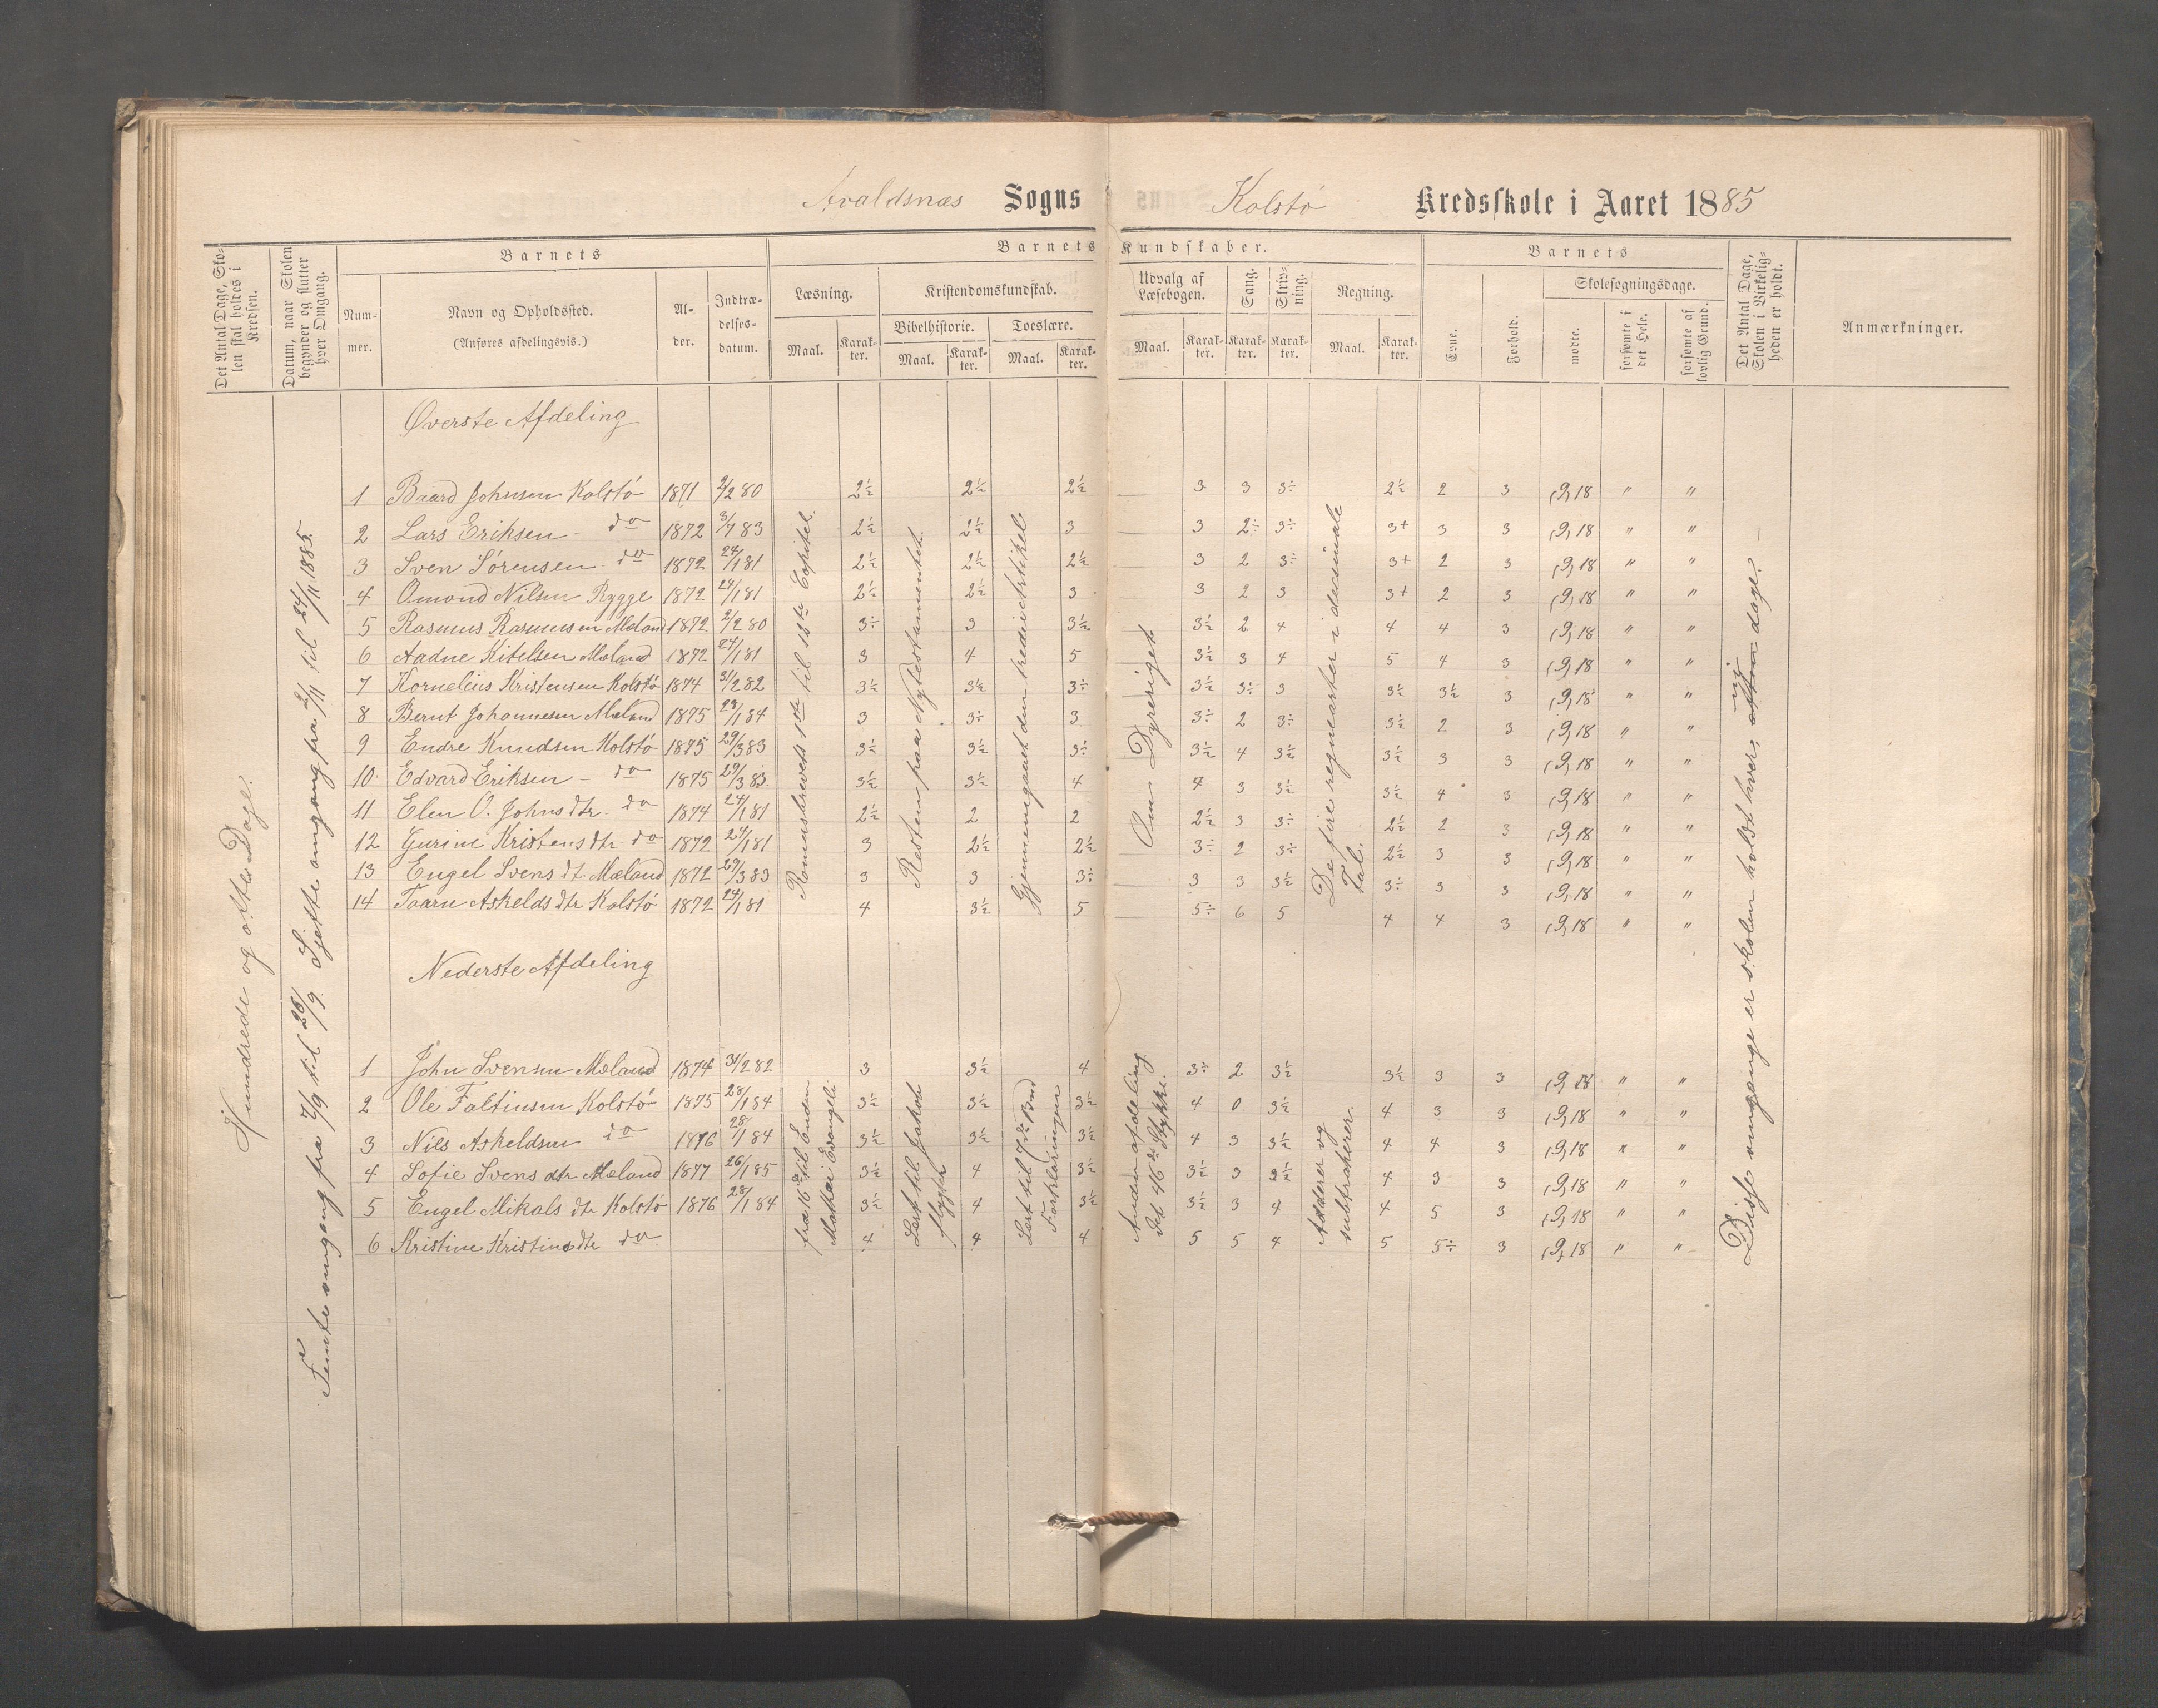 Avaldsnæs Sogns Kolstø Kredsskole i Aaret 1885
Det Antal Dage, Skolen skal holdes i Kredsen.
Datum, naar Skolen begynder og slutter hver Omgang.
Barnets
Nummer.
Navn og Opholdssted.
(Anføres afdelingsvis.)
Alder.
Indtrædelsesdatum.
Barnets Kundskaber.
Læsning.
Maal. Karakter.
Kristendomskundskab.
Bibelhistorie. Troeslære.
Maal. Karakter. Maal. Karakter.
Udvalg af Læsebogen.
Maal. Karakter.
Sang. Karakter.
Skrivning. Karakter.
Regning.
Maal. Karakter.
Barnets
Evne. Forhold.
Skolesøgningsdage.
mødte. forsømte i det Hele. forsømte af lovlig Grund.
Det Antal Dage, Skolen i Virkeligheden er holdt.
Anmærkninger.
Hundrede og otte Dage.
Femte omgang fra 7/9 til 26/9. Sjette omgang fra 2/11 til 24/11 1885.
Øverste Afdeling
1 Baard Johnsen Kolstø 1871 2/2 80 2½ 2½ 2½ 3 3 3÷ 2½ 2 3 19,18 " "
2 Lars Eriksen - do 1872 3/7 83 2½ 2½ 3 3 2÷ 3÷ 3+ 3 3 19,18 " "
3 Sven Sørensen do 1872 24/1 81 2½ 2½ 2½ 3 2 3÷ 3+ 2 3 19,18 " "
4 Omond Nilsen Rygge 1872 24/1 81 2½ 2½ 3 3 2 3 3+ 2 3 19,18 " "
5 Rasmus Rasmussen Mæland 1872 2/2 80 3÷ 3 3½ 3½ 2 4 4 4 3 19,18 " "
6 Aadne Kitelsen Mæland 1872 24/1 81 3 4 5 3½ 3 4 5 4 3 19,18 " "
7 Kornelius Kristensen Kolstø 1874 31/2 82 3½ 3½ 3÷ 3½ 3÷ 3 3½ 3½ 3 19,18 " "
8 Bernt Johannesen Mæland 1875 28/1 84 3 3÷ 3 3÷ 2 3÷ 3½ 2 3 19,18 " "
9 Endre Knudsen Kolstø 1875 29/3 83 3½ 3½ 3÷ 3½ 4 3½ 3½ 3 3 19,18 " "
10 Edvard Eriksen - do 1875 29/3 83 3½ 3½ 4 4 3 3½ 3½ 4 3 19,18 " "
11 Elen O. Johns dtr. do 1874 24/1 81 2½ 2 2 2½ 3 3÷ 2½ 2 3 19,18 " "
12 Gurine Kristens dtr do 1872 24/1 81 3 2½ 2½ 3÷ 2 3÷ 2½ 3 3 19,18 " "
13 Engel Svens dt. Mæland 1872 29/3 83 3 3 3÷ 3 3 3½ 3÷ 3 3 19,18 " "
14 Taarn Askelds dtr Kolstø 1872 24/1 81 4 3½ 5 5÷ 6 5 4 4 3 19,18 " "
Romerbrevets 1ste til 12te Capitel.
Resten paa Nytestamentet.
Gjennemgaaet den tredie Artikel
Om Dyreriget
De fire regnearter i decimale Tal.
Disse omgange er skolen holdt hver, ni dage.
Nederste Afdeling
1 John Svensen Mæland 1874 31/2 82 3 3½ 4 3÷ 2 3½ 3½ 3 3 19,18 " "
2 Ole Faltinsen Kolstø 1875 28/1 84 3½ 3½ 3½ 4 0 3½ 4 3 3 19,18 " "
3 Nils Askeldsen do 1876 28/1 84 3½ 3½ 3½ 4 3 3½ 4 4 3 19,18 " "
4 Sofie Svens dtr Mæland 1877 26/1 85 3½ 4 3½ 3½ 3 3½ 4 3 3 19,18 " "
5 Engel Mikals dtr Kolstø 1876 28/1 84 3½ 4 3½ 3½ 3 4 4 5 3 19,18 " "
6 Kristine Kristine dtr do 4 4 4 5 5 4 5 5÷ 3 19,18 " "
fra 16de til Enden Mathæi Evangeli
Lest til Jakobs flygter
Lest til 7de Bud Forklaringen
Anden afdeling det 46de Stykke.
Adderer og subtraherer.